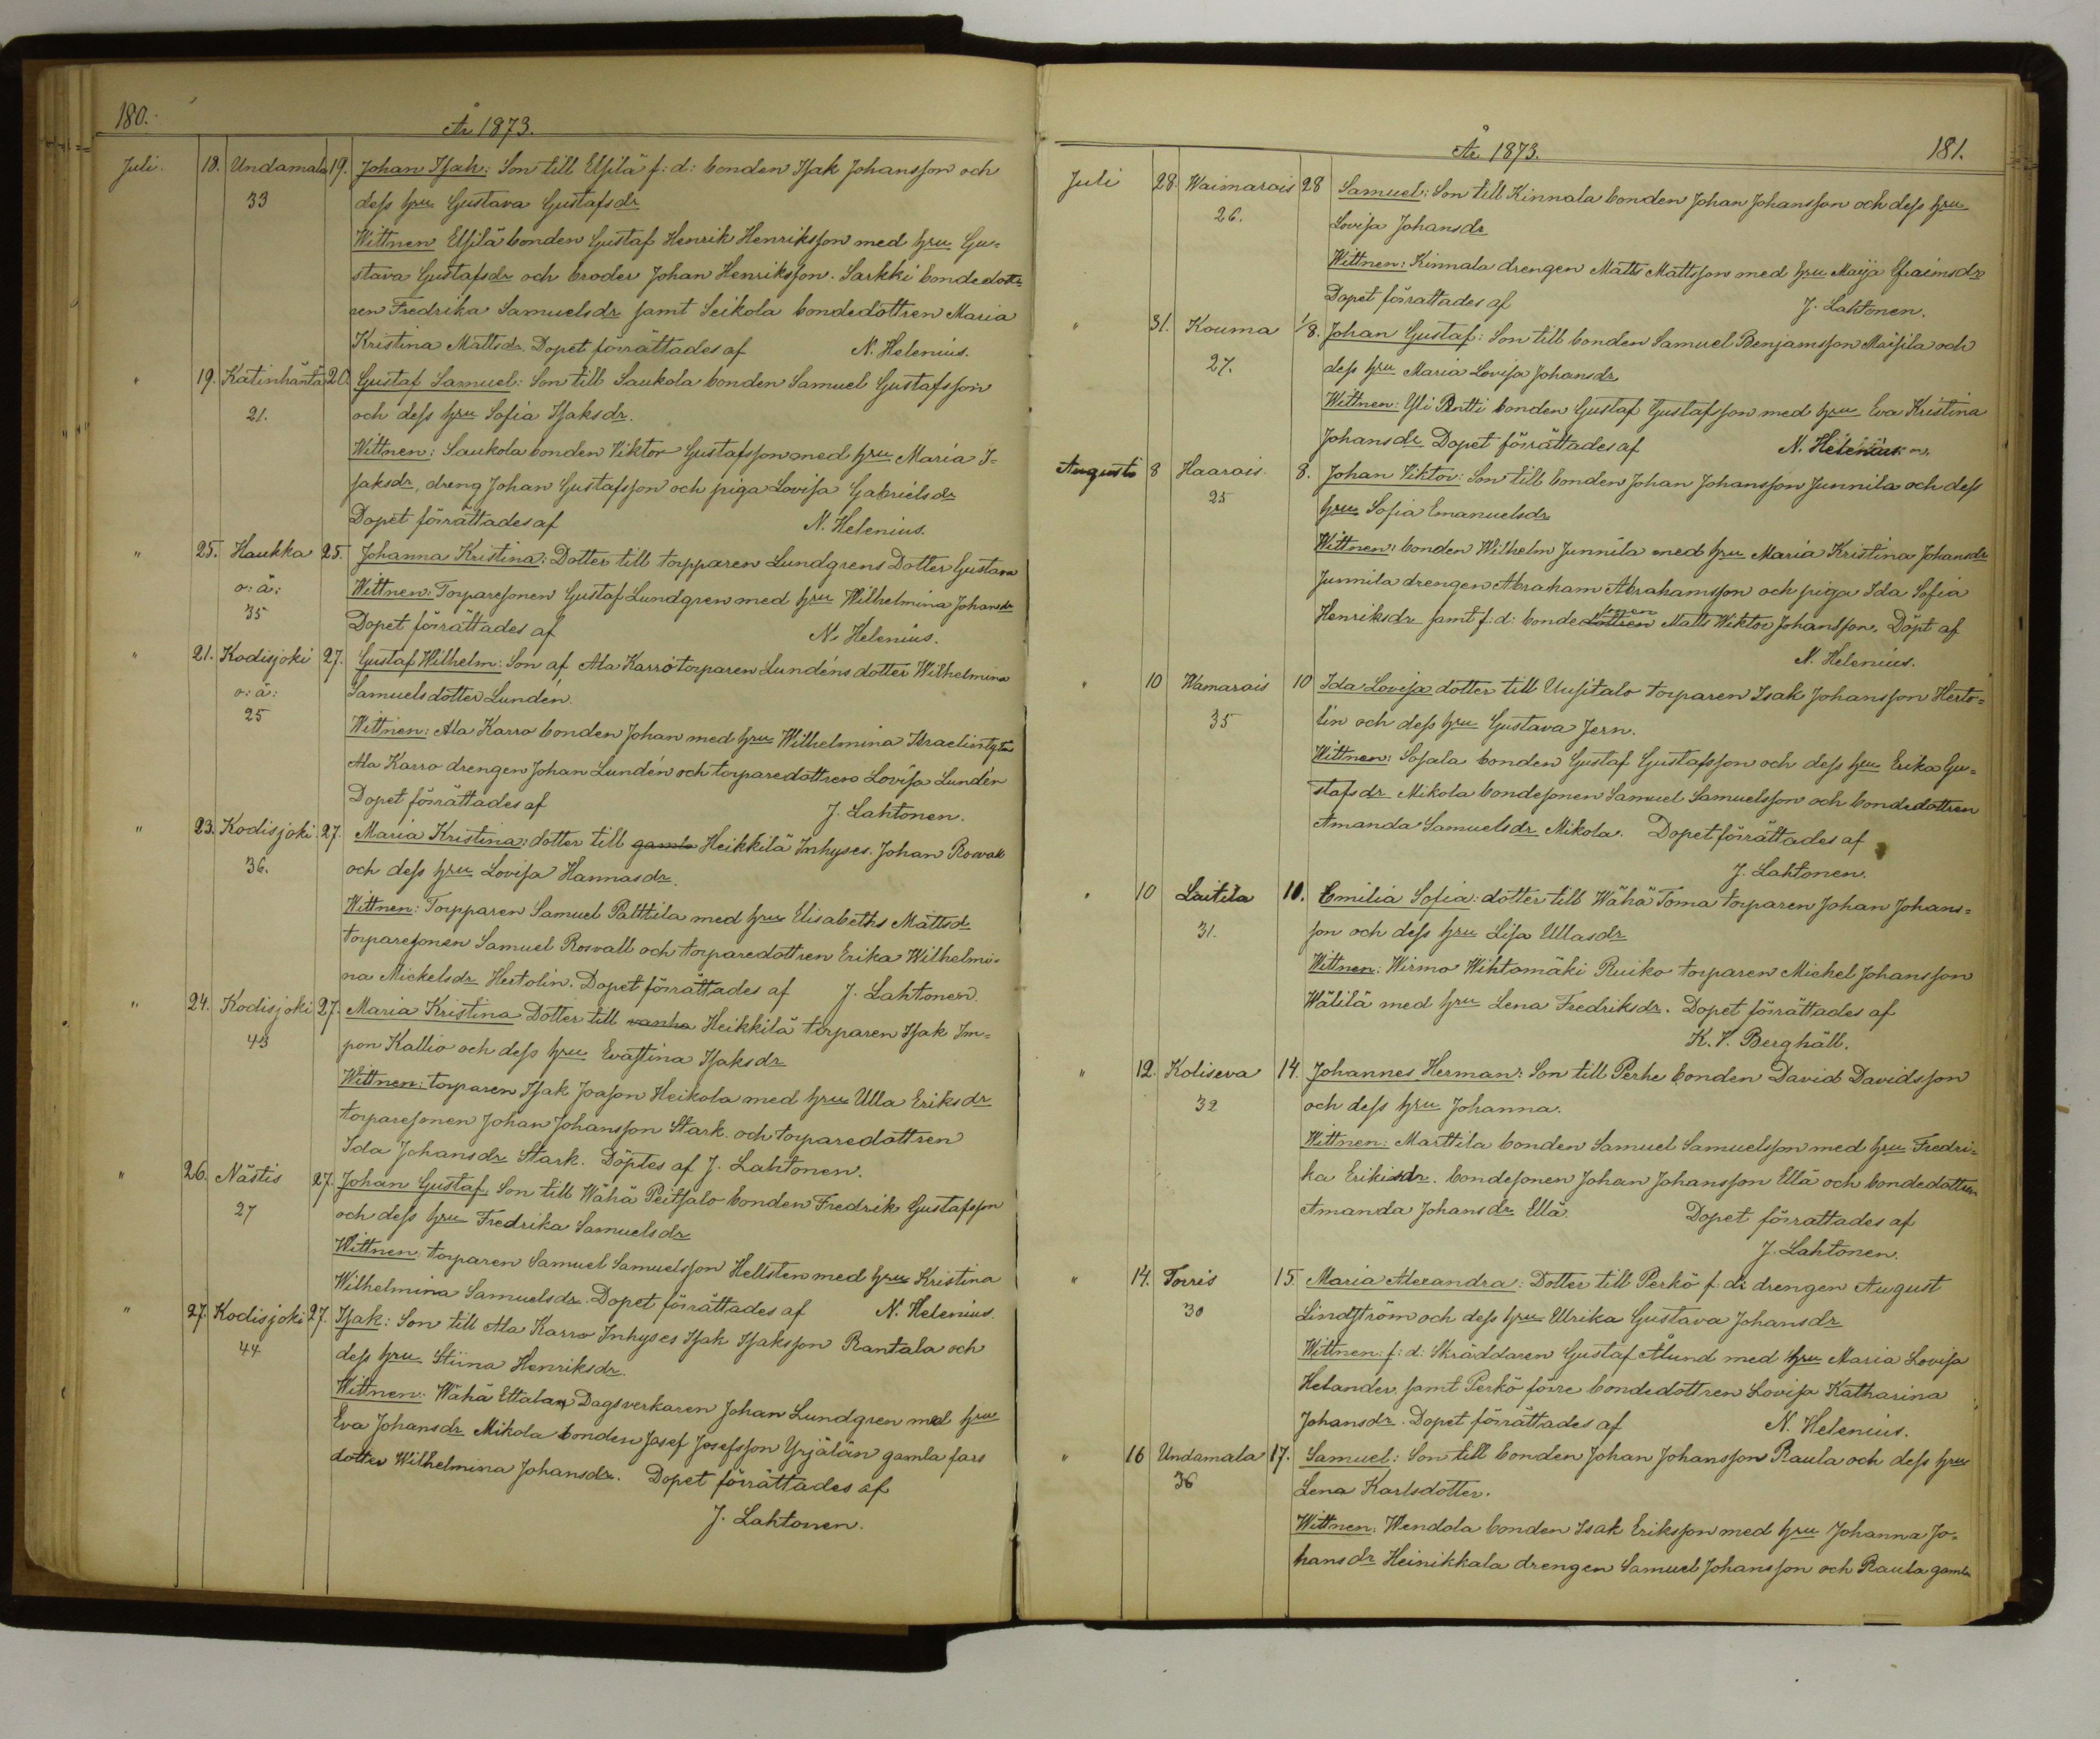 180.
År 1873.
Juli. 18. Undamala 19. Johan Isak: Son till Elsilä f: d: bonden Isak Johansson och
33 dess hru Gustava Gustafsdr
Wittnen Elsilä bonden Gustaf Henrik Henriksson med hru Gu=
stava Gustafsdr och broder Johan Henriksson. Sarkki bondedott=
ren Fredrika Samuelsdr samt Seikola bondedottren Maria
Kristina Mattsdr. Dopet förrättades af N. Helenius.
" 19. Katinhäntä 20. Gustaf Samuel: Son till Saukola bonden Samuel Gustafsson
21. och dess hru Sofia Isaksdr.
Wittnen: Saukola bonden Viktor Gustafsson med hru Maria I=
saksdr, dreng Johan Gustafsson och piga Lovisa Gabrielsdr
Dopet förrättades af N. Helenius.
" 25. Haukka 25. Johanna Kristina: Dotter till torpparen Lundgrens Dotter Gustava
o: ä: Wittnen: Torparesonen Gustaf Lundgren med hru Wilhelmina Johansdr
35 Dopet förrättades af N. Helenius.
" 21. Kodisjoki 27. Gustaf Wilhelm: Son af Ala Karro torparen Lundéns dotter Wilhelmina
o: ä: Samuelsdotter Lundén.
25
Wittnen: Ala Karro bonden Johan med hru Wilhelmina
Ala Karro drengen Johan Lundén och torparedottren Lovisa Lundén
Dopet förrättades af J. Lahtonen.
" 23. Kodisjoki 27. Maria Kristina: dotter till gamla Heikkilä Inhyses. Johan Roswall
36. och dess hru Lovisa Hannasdr.
Wittnen: Torpparen Samuel Palttila med hru Elisabeths Mattsd
torparesonen Samuel Rosvall och torparedottren Erika Wilhelmi=
na Mickelsdr Hertolin. Dopet förrättades af J. Lahtonen.
" 24. Kodisjoki 27. Maria Kristina Dotter till vanha Heikkilä torparen Isak Im=
43 pon Kallio och dess hru Evastina Isaksdr
Wittnen: torparen Isak Joason Heikola med hru Ulla Eriksdr
torparesonen Johan Johansson Stark. och torparedottren
Ida Johansdr Stark. Döptes af J. Lahtonen.
" 26. Nästis 27. Johan Gustaf. Son till Wähä Peitsalo bonden Fredrik Gustafsson
27 och dess hru Fredrika Samuelsdr
Wittnen: torparen Samuel Samuelsson Hellsten med hru Kristina
Wilhelmina Samuelsdr. Dopet förrättades af N. Helenius.
" 27. Kodisjoki 27. Isak: Son till Ala Karro Inhyses Isak Isaksson Rantala och
44 dess hru Stiina Henriksdr.
Wittnen: Wähä Ettalan Dagsverkaren Johan Lundgren med hru
Eva Johansdr Mikola bonden Josef Josefsson Yrjälän gamla fars
dotter Wilhelmina Johansdr. Dopet förrättades af
J. Lahtonen.
År 1873.
181.
Juli 28. Waimarois 28 Samuel: Son till Kinnala bonden Johan Johansson och dess hru
26. Lovisa Johansdr
Wittnen: Kinnala drengen Matts Mattsson med hru Maija Efraimsdr
Dopet förrattades af J. Lahtonen.
" 31. Kouma 1/8. Johan Gustaf: Son till bonden Samuel Benjamsson Maisila och
27. dess hru Maria Lovisa Johansdr
Wittnen: Yli Pentti bonden Gustaf Gustafsson med hru Eva Kristina
Johansdr Dopet förrättades af N. Helenius.
Augusti 8 Haarois. 8. Johan Viktor: Son till bonden Johan Johansson Junnila och dess
25 hru Sofia Emanuelsdr
Wittnen: bonden Wilhelm Junnila med hru Maria Kristina Johansdr
Junnila drengen Abraham Abrahamsson och piga Ida Sofia
Henriksdr samt f: d: bondedottren sonen Matts Wiktor Johansson. Döpt af
N. Helenius.
" 10 Wamarois 10 Ida Lovisa dotter till Uusitalo torparen Isak Johansson Herto=
35 lin och dess hru Gustava Jern.
Wittnen: Sosala bonden Gustaf Gustafsson och dess hru Erika Gu=
stafsdr Mikola bondesonen Samuel Samuelsson och bondedottren
Amanda Samuelsdr Mikola. Dopet förrättades af
J. Lahtonen.
" 10 Laitila 10. Emilia Sofia: dotter till Wähä Toma torparen Johan Johans=
31. son och dess hru Lisa Ullasdr
Wittnen: Wirmo Wihtamäki Ruiko torparen Michel Johansson
Wälilä med hru Lena Fredriksdr. Dopet förrättades af
K. V. Berghäll.
" 12. Koliseva 14. Johannes Herman: Son till Perhe bonden David Davidsson
32 och dess hru Johanna.
Wittnen: Marttila bonden Samuel Samuelsson med hru Fredri=
ka Eriksdr. bondesonen Johan Johansson Ellä och bondedottren
Amanda Johansdr Ellä. Dopet förrattades af
J. Lahtonen.
" 14. Torris 15. Maria Alexandra: Dotter till Perkö f: d: drengen August
30 Lindström och dess hru Ulrika Gustava Johansdr
Wittnen: f: d: Skräddaren Gustaf Ålund med hru Maria Lovisa
Helander, samt Perkö förre bondedottren Lovisa Katharina
Johansdr. Dopet förrättades af N. Helenius.
" 16 Undamala 17. Samuel: Son till bonden Johan Johansson Raula och dess hru
36 Lena Karlsdotter.
Wittnen: Wendola bonden Isak Eriksson med hru Johanna Jo=
hansdr Heinikkala drengen Samuel Johansson och Raula gamla